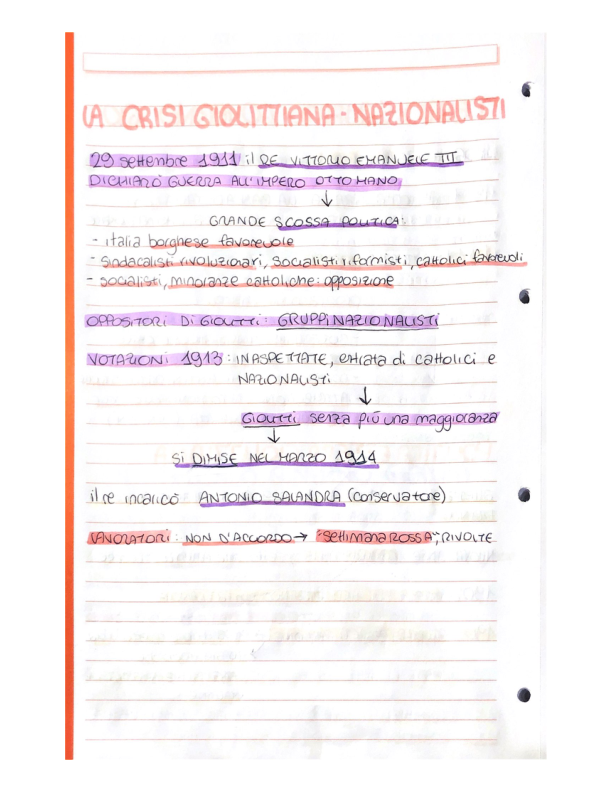 LA CRISI GIOLITTIANA - NAZIONALISTI
29 settembre 1911 il RE VITTORIO EMANUELE III
DICHIARÒ GUERRA ALL'IMPERO OTTOMANO
↓
GRANDE SCOSSA POLITICA:
- italia borghese favorevole
- Sindacalisti rivoluzionari, Socialisti riformisti, cattolici favorevoli
- socialisti, minoranze cattoliche: opposizione
OPPOSITORI DI GIOLITTI: GRUPPI NAZIONALISTI
VOTAZIONI 1913: INASPETTATE, entrata di cattolici e
NAZIONALISTI
↓
GIOLITTI senza più una maggioranza
↓
SI DIMISE NEL MARZO 1914
il re incaricò ANTONIO SALANDRA (conservatore)
LAVORATORI: NON D'ACCORDO → "settimana ROSSA", RIVOLTE